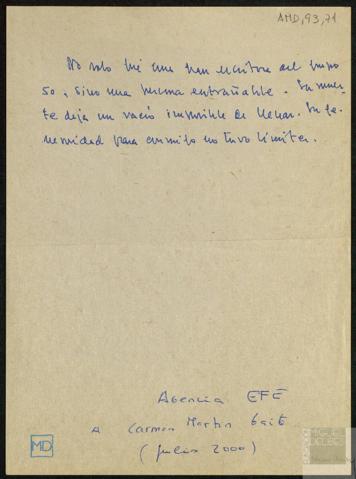 AMD, 93, 71
No solo fue una gran escritora del grupo
so, sino una persona entrañable. Su muer-
te deja un vacío imposible de llenar. Su ge-
nerosidad para conmigo no tuvo límites.
Agencia EFE
A Carmen Martín Gaite
(julio 2000)
MD